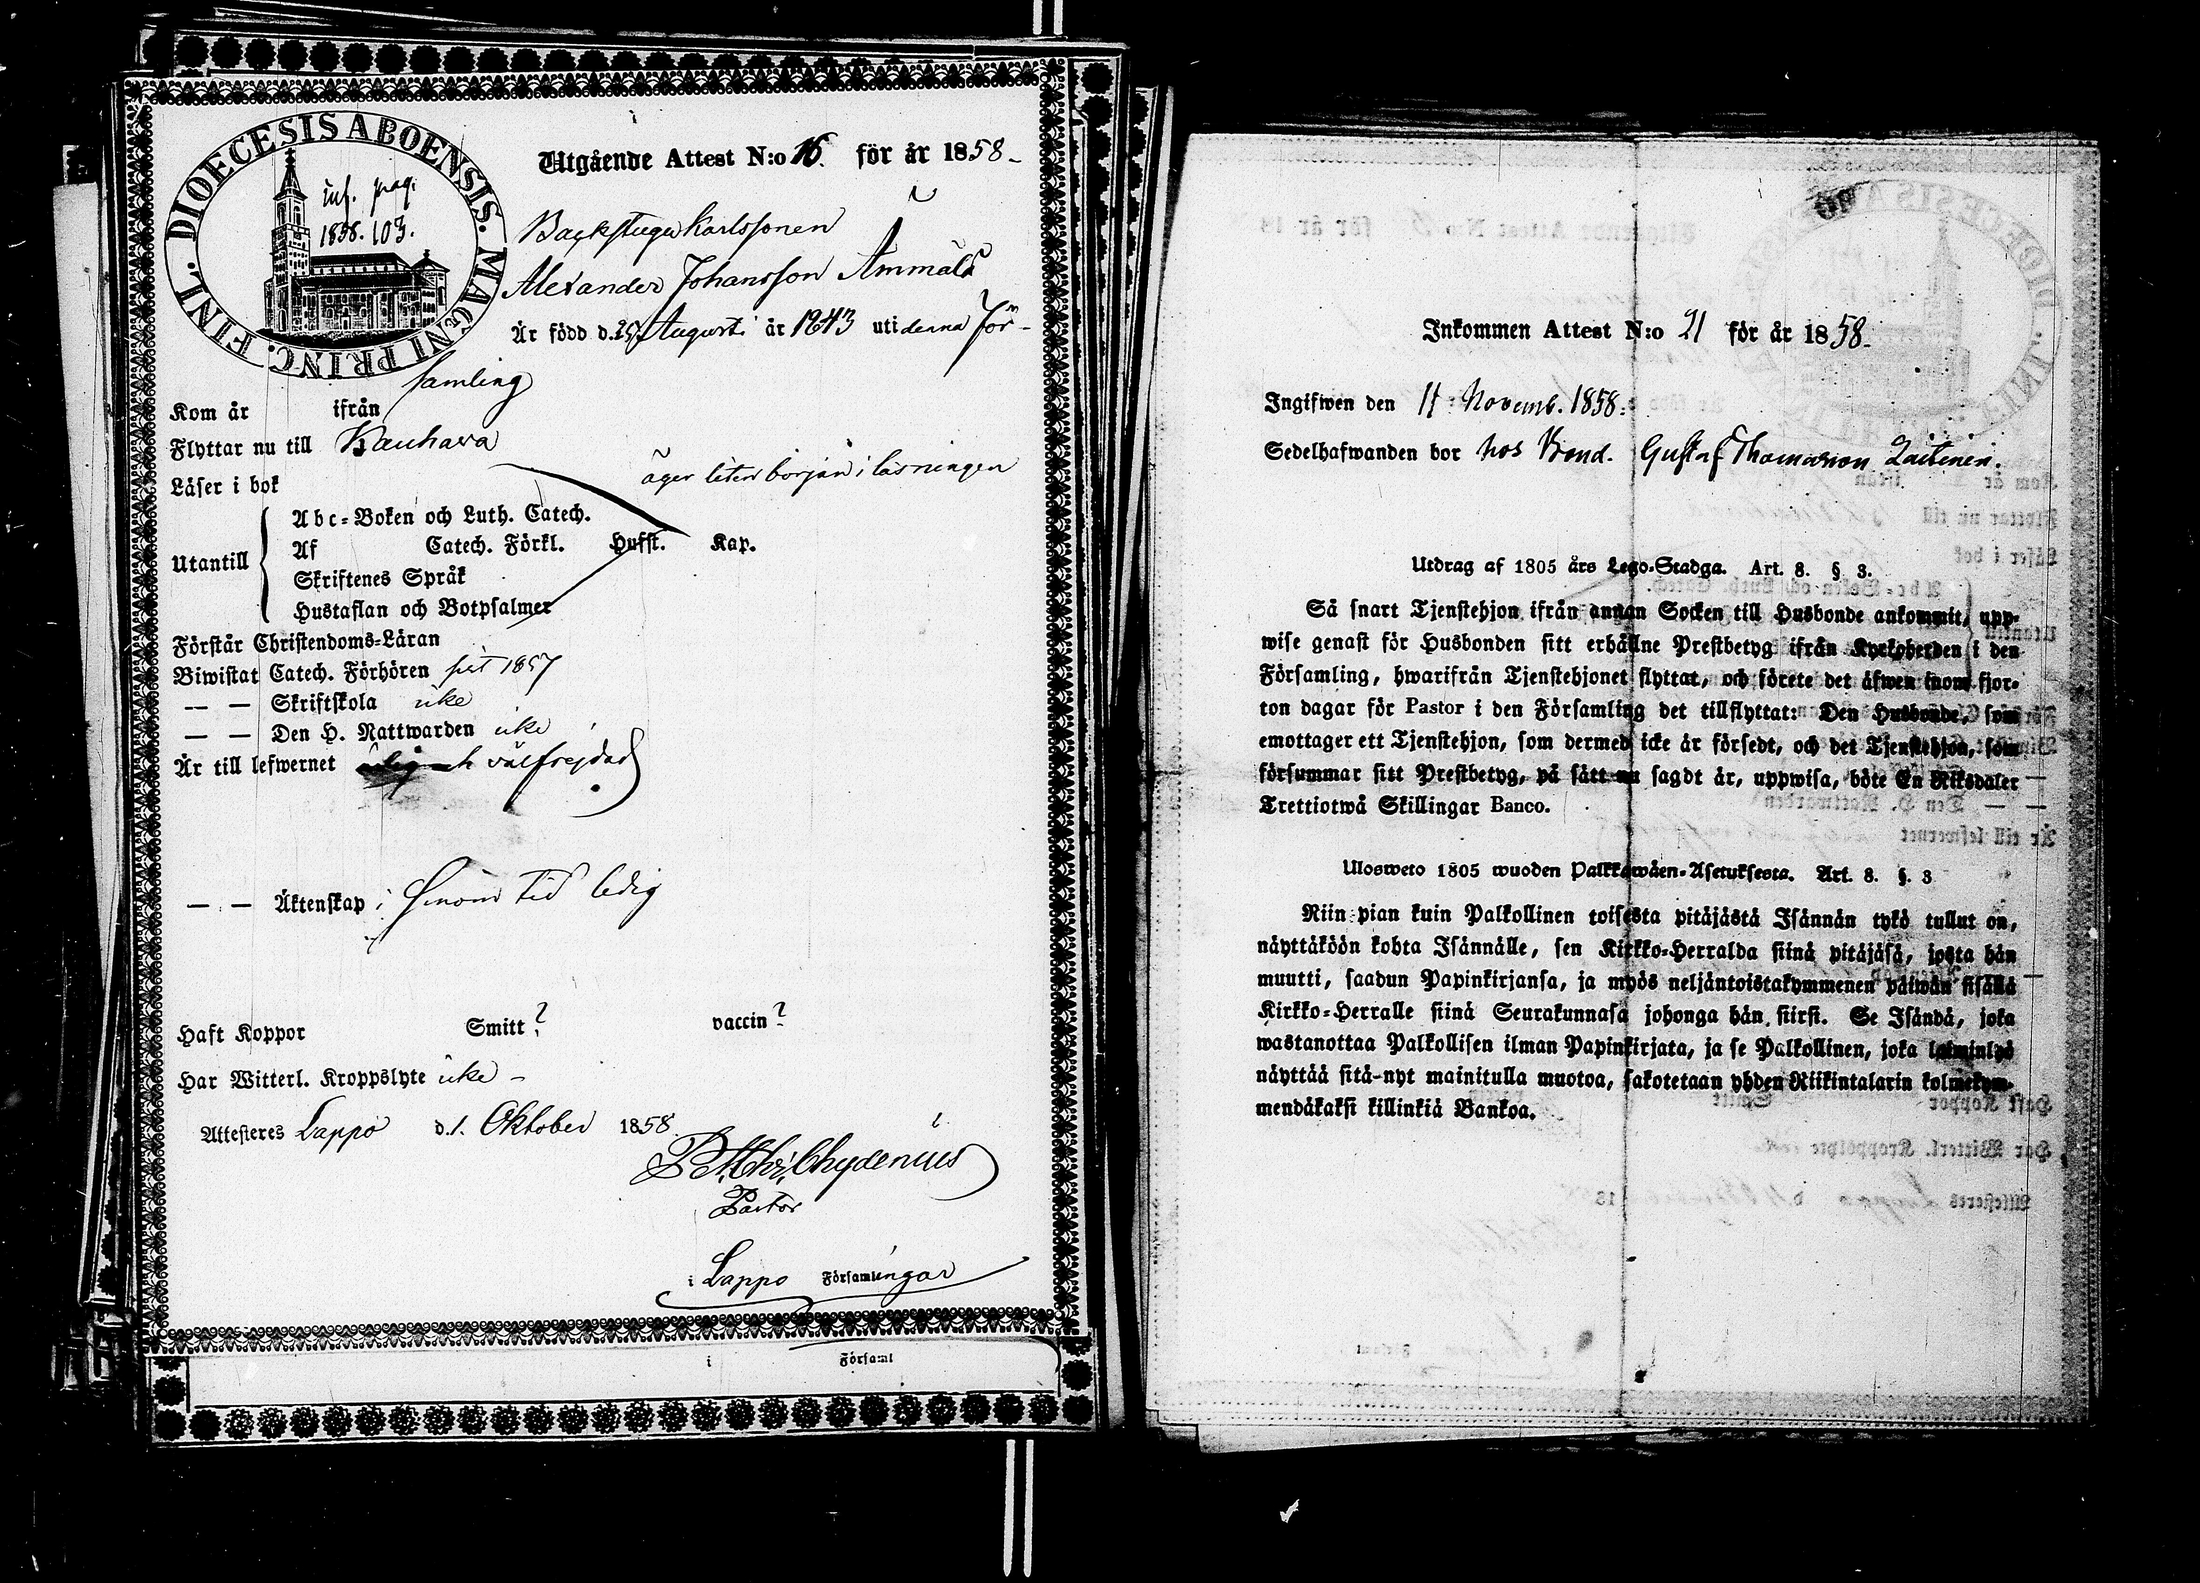 DIOECESIS ABOENSIS. MAGNI PRINC. FINL.
inf. pag.
1858. 103.
Utgående Attest N:o 16. för år 1858
Backstugu karlssonen
Alexander Johansson Ämmälä
Är född d. Augusti år 1843 uti denna För-
samling
Kom år ifrån
Flyttar nu till Kauhava
Läser i bok äger liten början i läsningen
Utantill
Abc-Boken och Luth. Catech.
Af Catech. Förkl. Husst. Kap.
Skriftenes Språk
Hustaflan och Botpsalmer
Förstår Christendoms-Läran
Biwistat Catech. Förhören sist 1857
— — Skriftskola icke
— — Den H. Nattwarden icke
Är till lefwernet välfrejdad
— — Äktenskap i sinom tid ledig
Haft Koppor Smitt? vaccin?
Har Witterl. Kroppslyte icke –
Attesteres Lappo d. 1. Oktober 1858.
Chydenius
Pastor
i Lappo Församlingar
i Församl
Inkommen Attest N:o 21 för år 1858.
Ingifwen den 11 Novemb. 1858.
Sedelhafwanden bor hos Bond. Gustaf Thomasson Laitinen.
Utdrag af 1805 års Lego-Stadga. Art. 8. § 3.
Så snart Tjenstehjon ifrån annan Socken till Husbonde ankommit, upp-
wise genast för Husbonden sitt erhållne Prestbetyg ifrån Kyrkoherden i den
Församling, hwarifrån Tjenstehjonet flyttat, och förete det äfwen inom fjor-
ton dagar för Pastor i den Församling det tillflyttat: Den Husbonde, som
emottager ett Tjenstehjon, som dermed icke är försedt, och det Tjenstehjon, som
försummar sitt Prestbetyg, på sätt nu sagdt är, uppwisa, böte En Riksdaler
Trettiotwå Skillingar Banco.
Ulosweto 1805 wuoden Palkkawäen-Asetuksesta. Art. 8. §. 3
Niin pian kuin Palkollinen toisesta pitäjästä Isännän tykö tullut on,
näyttäköön kohta Isännälle, sen Kirkko-Herralda siinä pitäjäsä, josta hän
muutti, saadun Papinkirjansa, ja myös neljäntoistakymmenen päiwän sisällä
Kirkko-Herralle siinä Seurakunnasa johonga hän siirsi. Se Isändä, joka
wastanottaa Palkollisen ilman Papinkirjata, ja se Palkollinen, joka laiminlyö
näyttää sitä-nyt mainitulla muotoa, sakotetaan yhden Riikintalarin kolmekym-
mendäkaksi killinkiä Bankoa.